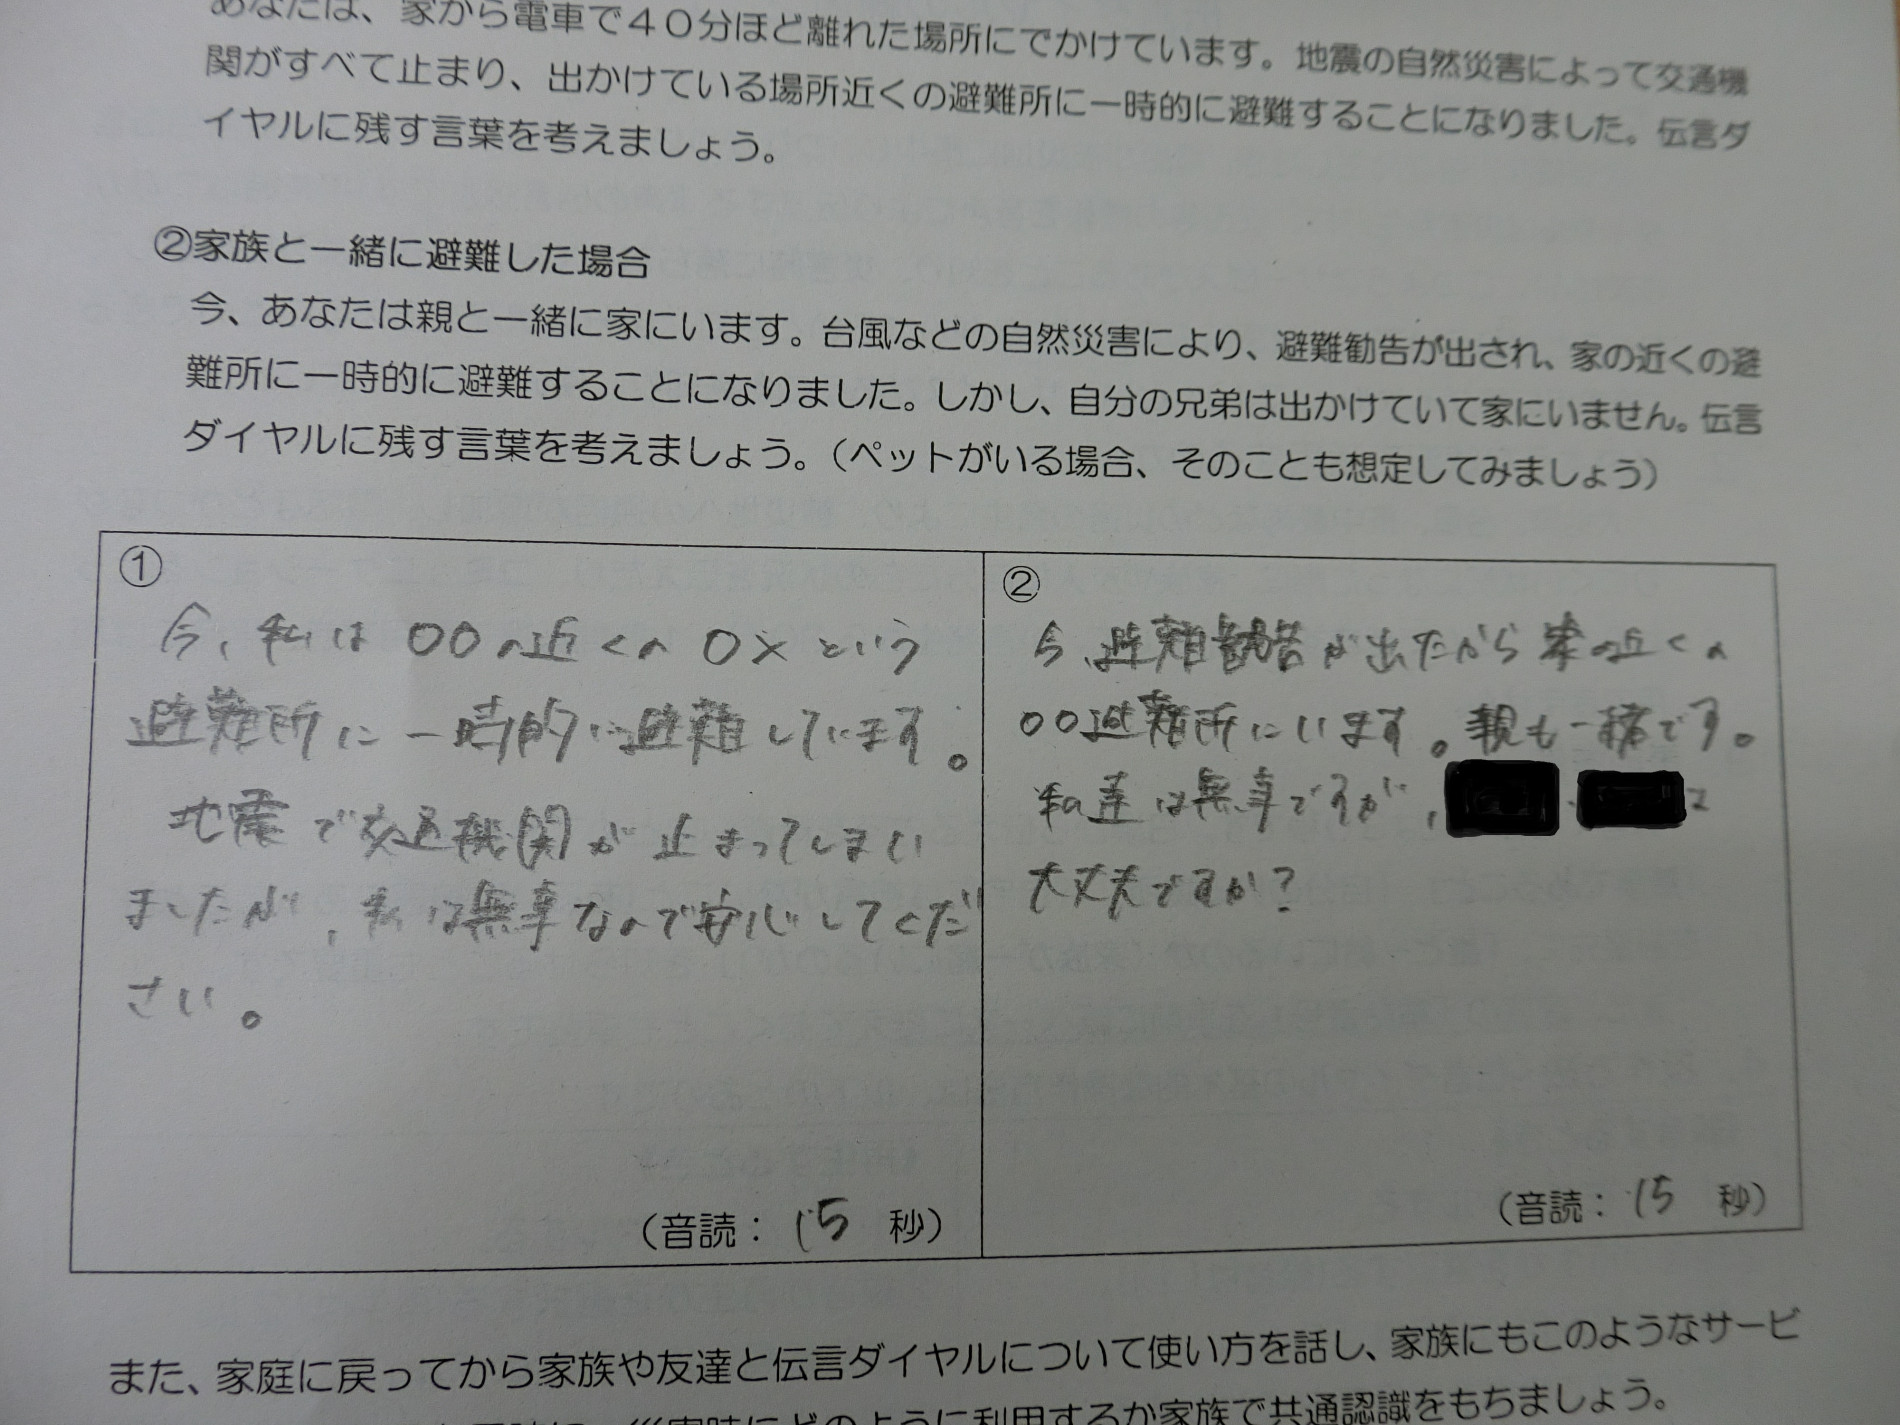 あなたは、家から電車で４０分ほど離れた場所にでかけています。地震の自然災害によって交通機
関がすべて止まり、出かけている場所近くの避難所に一時的に避難することになりました。伝言ダ
イヤルに残す言葉を考えましょう。
②家族と一緒に避難した場合
今、あなたは親と一緒に家にいます。台風などの自然災害により、避難勧告が出され、家の近くの避
難所に一時的に避難することになりました。しかし、自分の兄弟は出かけていて家にいません。伝言
ダイヤルに残す言葉を考えましょう。（ペットがいる場合、そのことも想定してみましょう）
①
今、私は〇〇の近くの〇×という
避難所に一時的に避難しています。
地震で交通機関が止まってしまい
ましたが、私は無事なので安心してくだ
さい。
（音読：15秒）
②
今、避難勧告が出たから家の近くの
〇〇避難所にいます。親も一緒です。
私達は無事ですが、
大丈夫ですか？
（音読：15秒）
また、家庭に戻ってから家族や友達と伝言ダイヤルについて使い方を話し、家族にもこのようなサービ
災害時にどのように利用するか家族で共通認識をもちましょう。